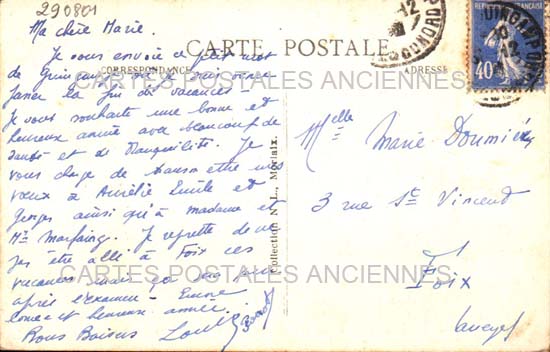 290801
CARTE POSTALE
CORRESPONDANCE
ADRESSE
CARTES POSTALES ANCIENNES
Ma chère Marie.
Je vous envoie ce petit mot
de Guingamp où je suis venu
passer la fin de vacances
Je vous souhaite une bonne et
heureuse année avec beaucoup de
santé et de tranquilité. Je
vous charge de transmettre mes
vœux à Aurélie Emile et
Georges ainsi qu'à madame et
Mr Marfaing. Je regrette de ne
pas être allé à Foix ces
vacances mais
après l'examen. Encore
bonne et heureuse année.
Bons Baisers
Collection N. L., Morlaix.
Melle Marie
3 rue St Vincent
Foix
Ariège
CARTES POSTALES ANCIENNES
GUINGAMP
12
40
FRANÇAISE